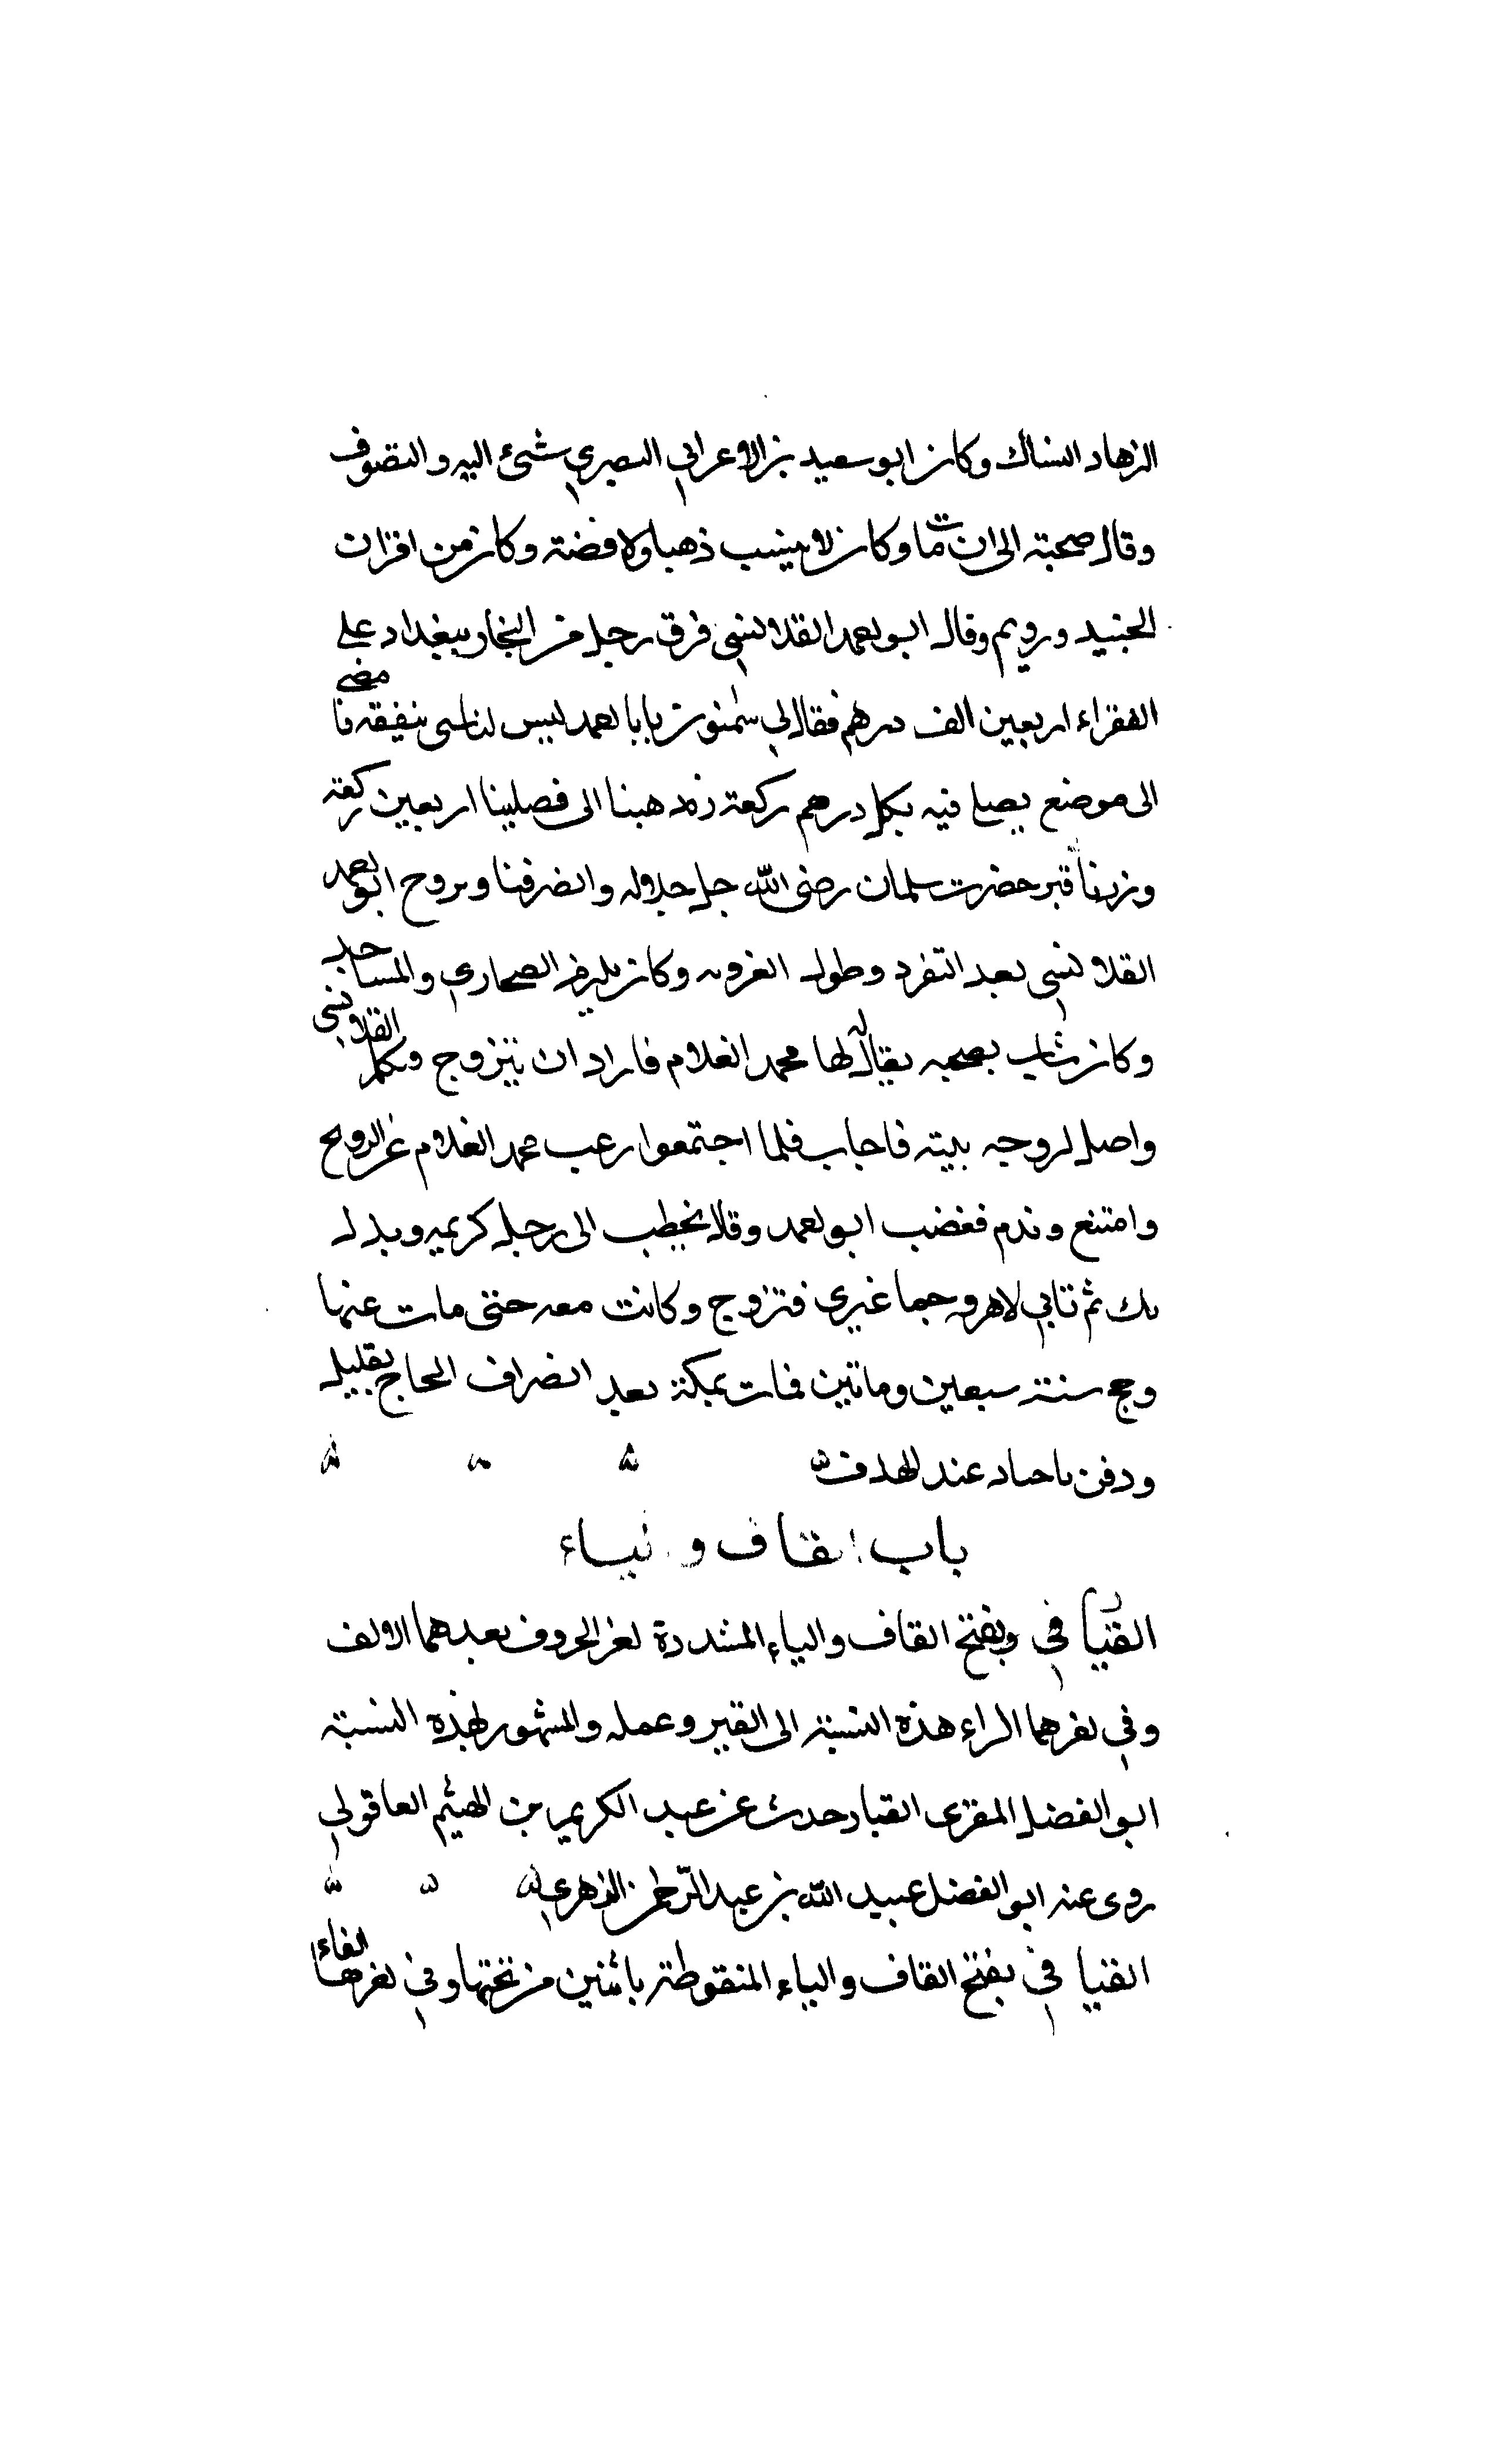 الزهاد النساك وكان ابو سعيد بن الاعرابي البصري شئ اليه والتصوف
وقال صحبته الى ان مات وكان لا يبيت ذهبا ولا فضة وكان من اقران
الجنيد ورويم وقال ابو احمد القلانسي فرق رجل من التجار ببغداد على
الفقراء اربعين الف درهم فقال لي سمنون يا با احمد ليس لنا شى ننفقه فا مضى
الى موضع يصلي فيه بكل درهم ركعة فذهبنا الى فصلينا اربعين ركعة
وزرنا قبر حضرت سلمان رضى الله جل جلاله وانصرفنا وتزوج ابو احمد
القلانسي بعد التفرد وطول العزوبه وكان يلزم الصحاري والمساجد
وكان شاب يصحبه يقال له لها محمد الغلام فاراد ان يتزوج وكلم القلانسي
واصل لزوجه بيته فاجاب فلما اجتمعوا رغب محمد الغلام عن الزوج
وامتنع وندم فغضب ابو احمد وقال يخطب الى رجل كريمه وبذل
لك ثم تابي لا هروجها غيري فتزوج وكانت معه حتى مات عنها
وحج سنة سبعين وماتين فمات بمكة بعد انصراف الحاج بقليل
ودفن باجياد عند الهدف
باب القاف والياء
القيا في وبفتح القاف والياء المشددة لغز الحروف بعدهما الالف
وفي لغرهما الراء هذه النسبة الى القير وعمله والمشهور لهذه النسبة
ابو الفضل المقرى القيار حدث عن عبد الكريم بن الهيثم العاقولي
روى عنه ابو الفضل عبيد الله بن عبد الرحمن الزهري
القيا في بفتح القاف والياء المنقوطة باثنين من تحتها وفي لغرها الفاء